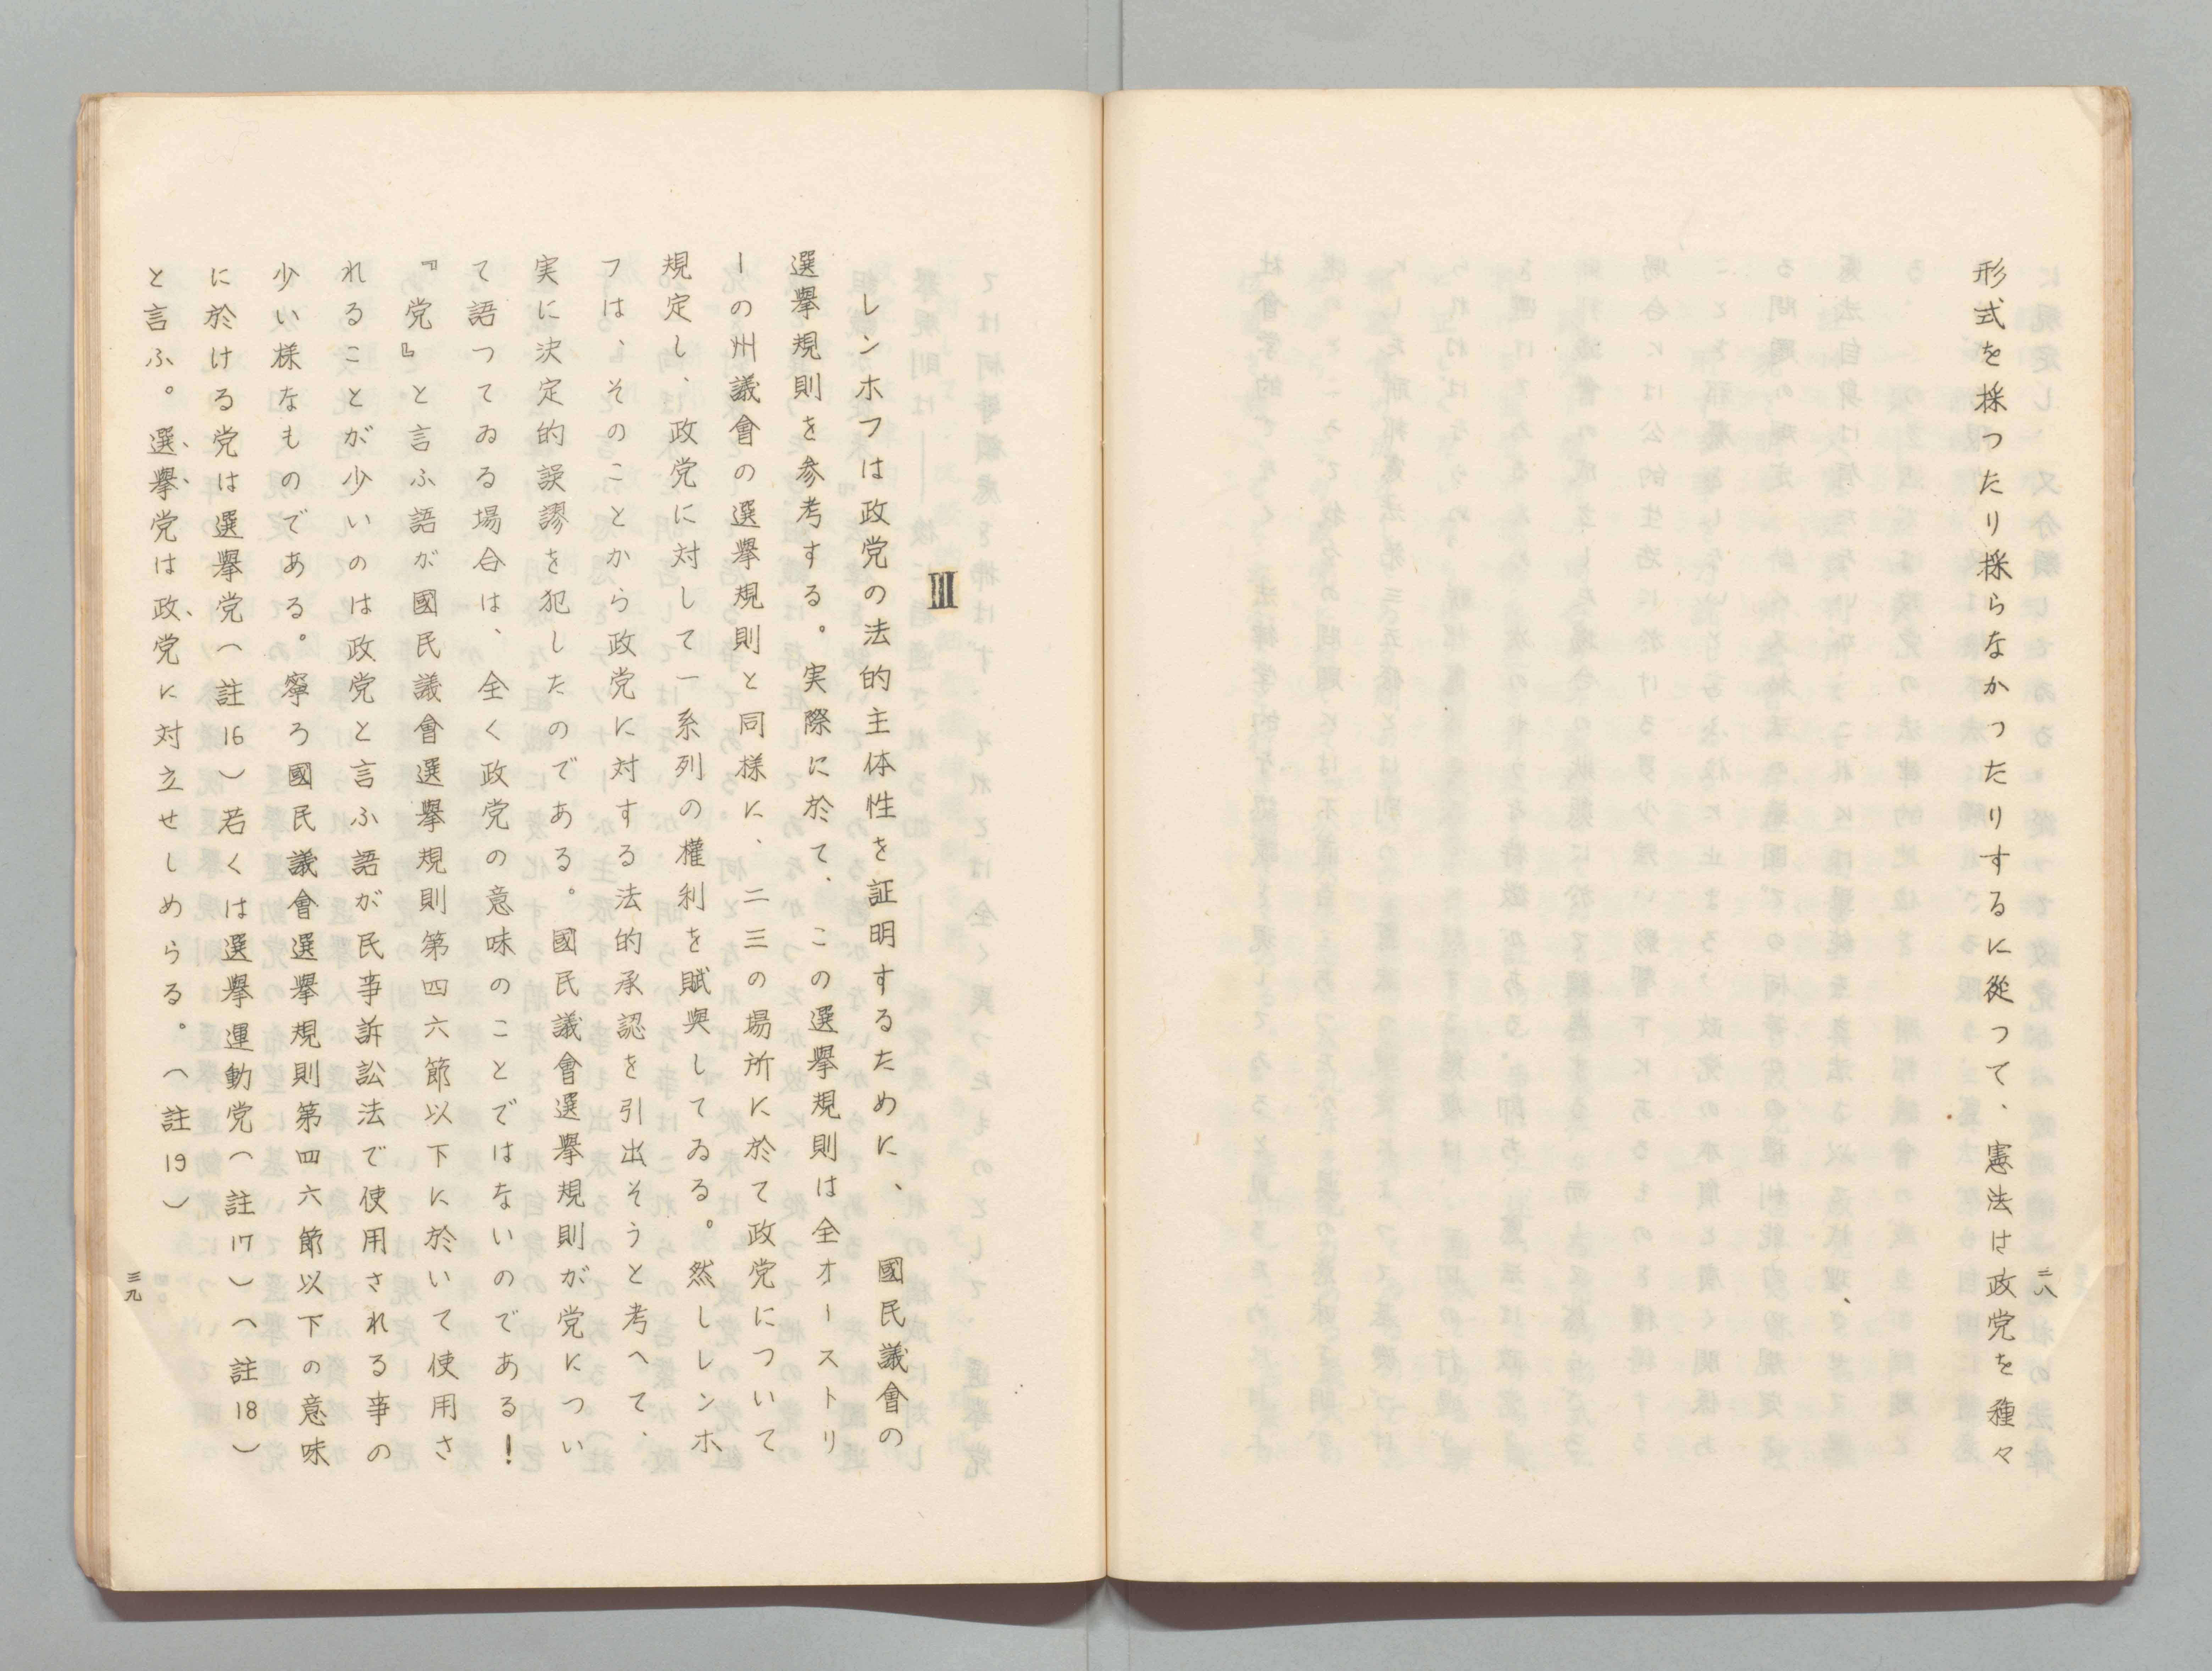 形式を採つたり採らなかつたりするに從つて、憲法は政党を種々
三八
Ⅲ
レンホフは政党の法的主体性を証明するために、國民議會の
選擧規則を参考する。実際に於て、この選擧規則は全オーストリ
ーの州議會の選擧規則と同様に、二三の場所に於て政党について
規定し、政党に対して一系列の權利を賦與してゐる。然しレンホ
フは、そのことから政党に対する法的承認を引出そうと考へて、
実に決定的誤謬を犯したのである。國民議會選擧規則が党につい
て語つてゐる場合は、全く政党の意味のことではないのである！
『党』と言ふ語が國民議會選擧規則第四六節以下に於いて使用さ
れることが少いのは政党と言ふ語が民事訴訟法で使用される事の
少い様なものである。寧ろ國民議會選擧規則第四六節以下の意味
に於ける党は選擧党（註16）若くは選擧運動党（註17）（註18）
と言ふ。選擧党は政党に対立せしめらる。（註19）
三九